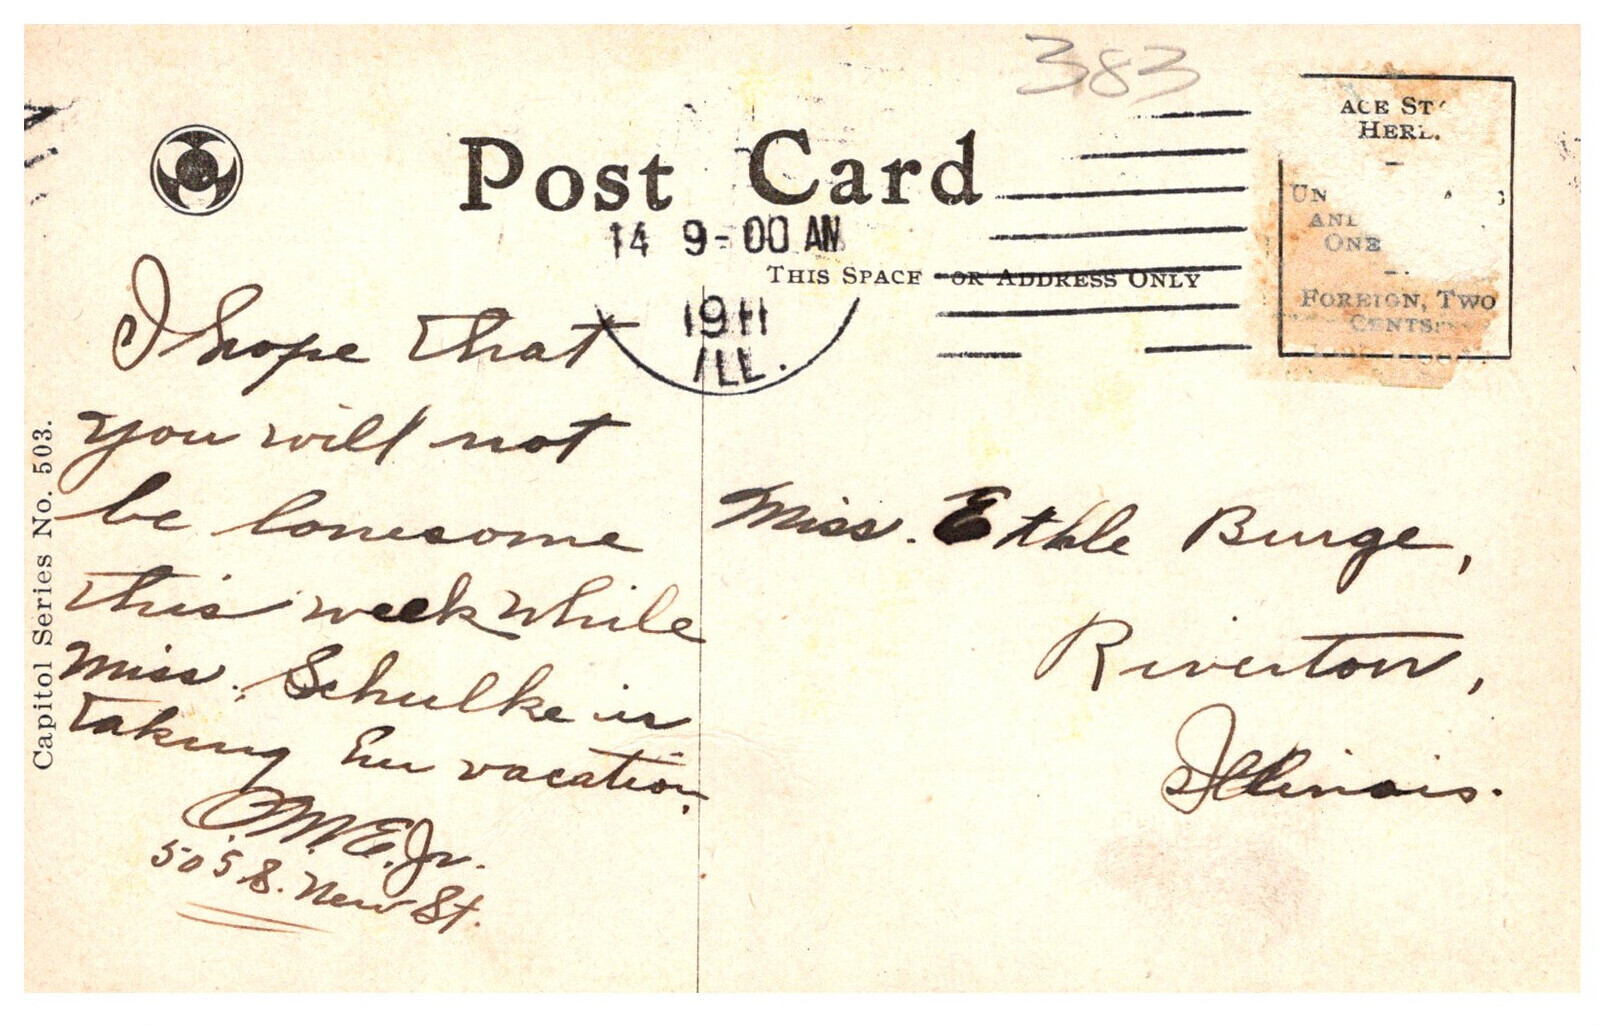 383
Post Card
14 9-00 AM
1911
ILL.
THIS SPACE OR ADDRESS ONLY
ACE ST
HERE.
UN
AND
ONE
FOREIGN, TWO
CENTS
Capitol Series No. 503.
I hope that
you will not
be lonesome
this week while
Miss. Schulke is
taking her vacation.
M. E. Jr.
505 S. New St.
Miss. Ethle Burge,
Riverton,
Illinois.